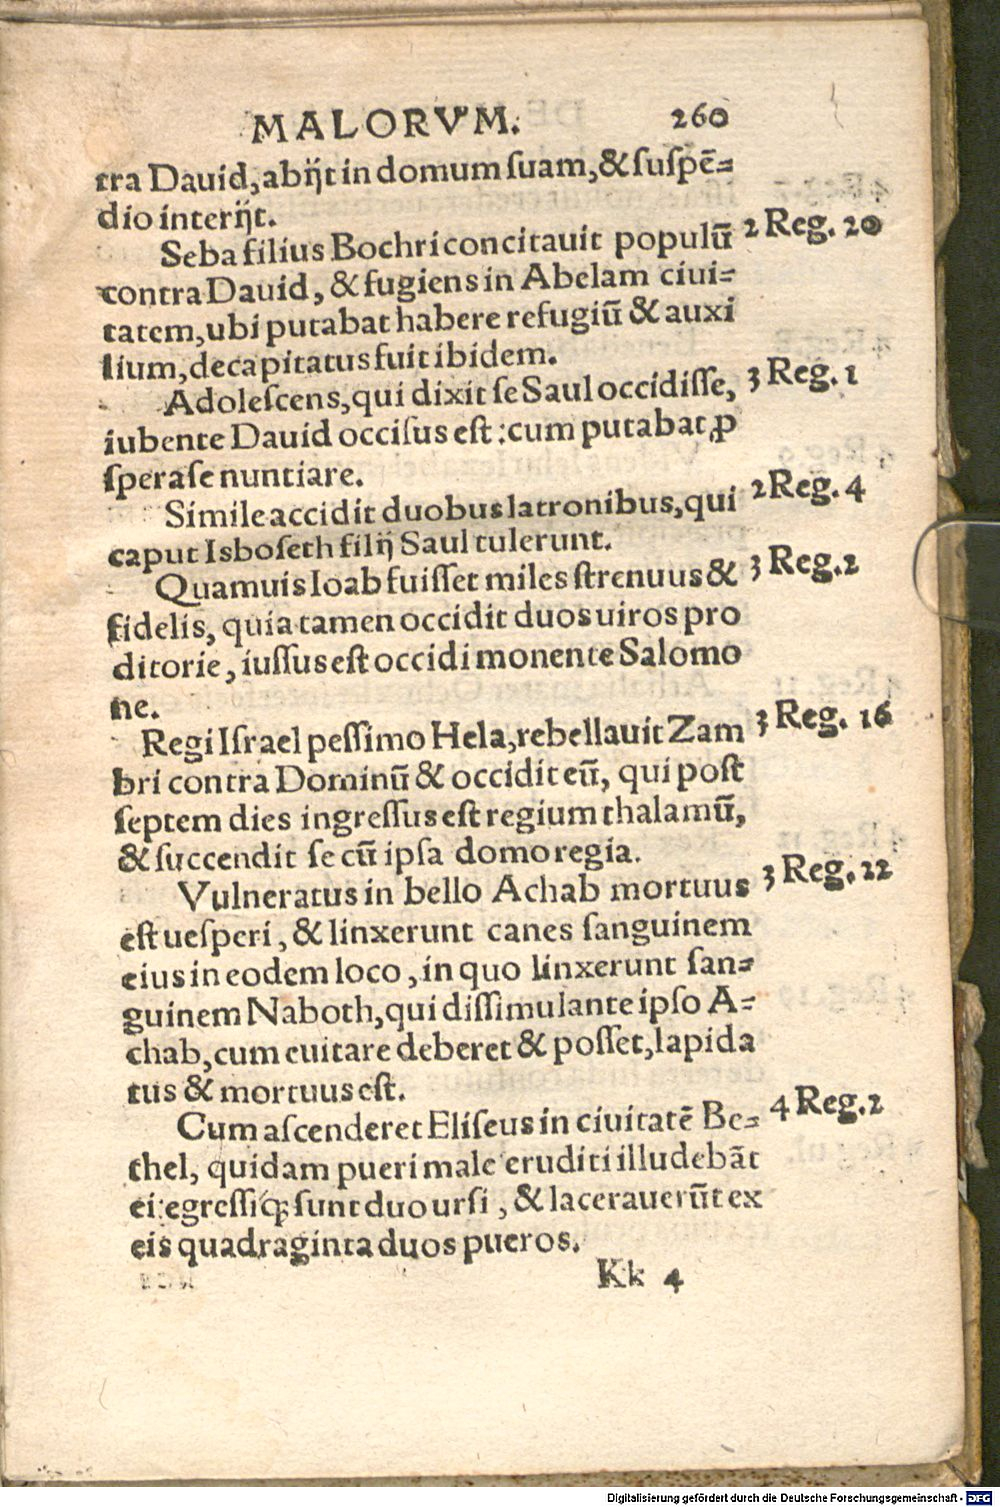 MALORVM. 260
tra Dauid, abijt in domum suam, & suspẽ-
dio interijt.
Seba filius Bochri concitauit populũ 2 Reg. 20
contra Dauid, & fugiens in Abelam ciui-
tatem, ubi putabat habere refugiũ & auxi
lium, decapitatus fuit ibidem.
Adolescens, qui dixit se Saul occidisse, 3 Reg. 1
iubente Dauid occisus est: cum putabat ꝓ
spera se nuntiare.
Simile accidit duobus latronibus, qui 2 Reg. 4
caput Isboseth filij Saul tulerunt.
Quamuis Ioab fuisset miles strenuus & 3 Reg. 2
fidelis, quia tamen occidit duos uiros pro
ditorie, iussus est occidi monente Salomo
ne.
Regi Israel pessimo Hela, rebellauit Zam 3 Reg. 16
bri contra Dominũ & occidit eũ, qui post
septem dies ingressus est regium thalamũ,
& succendit se cũ ipsa domo regia.
Vulneratus in bello Achab mortuus 3 Reg. 22
est uesperi, & linxerunt canes sanguinem
eius in eodem loco, in quo linxerunt san-
guinem Naboth, qui dissimulante ipso A-
chab, cum euitare deberet & posset, lapida
tus & mortuus est.
Cum ascenderet Eliseus in ciuitatẽ Be- 4 Reg. 2
thel, quidam pueri male eruditi illudebãt
ei: egressiq́; sunt duo ursi, & lacerauerũt ex
eis quadraginta duos pueros.
Kk 4
Digitalisierung gefördert durch die Deutsche Forschungsgemeinschaft - DFG